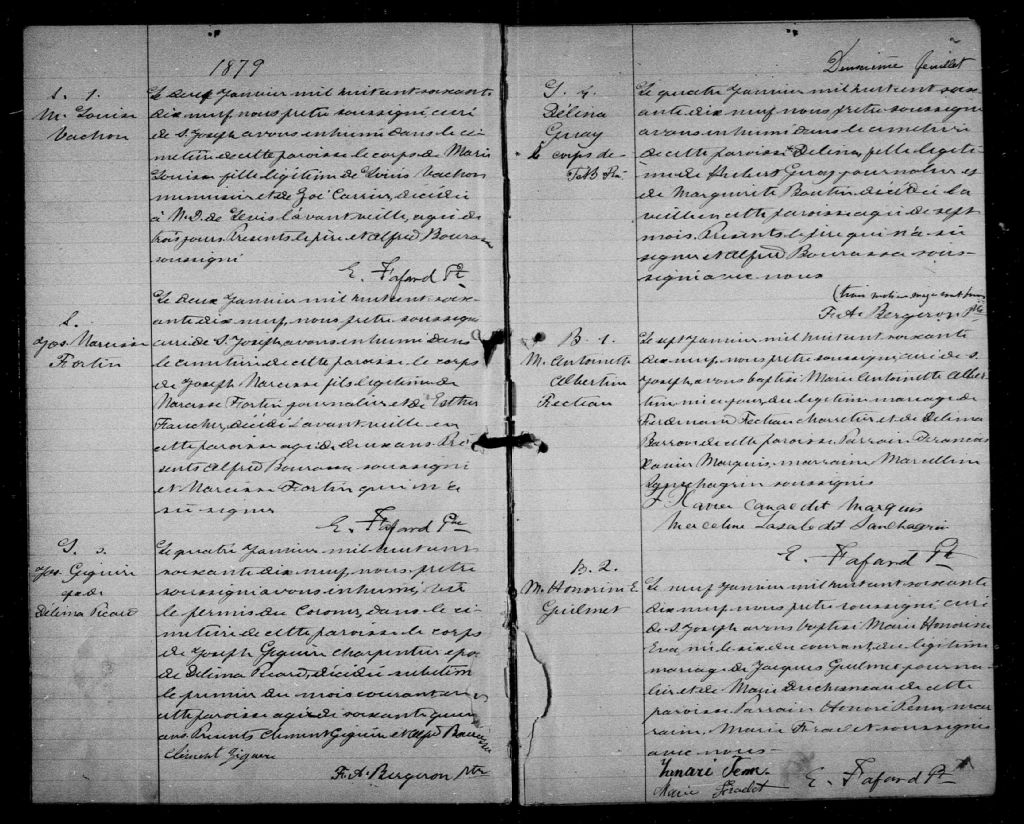 1879
S. 1.
M. Louise
Vachon
Le deux Janvier mil huit cent soixante
dix neuf, nous prêtre soussigné, curé
de S. Joseph avons inhumé dans le ci-
metière de cette paroisse le corps de Marie
Louise fille légitime de Louis Vachon
menuisier et de Zoé Carrier, décédée
à N. D. de Levis l'avant veille, agée de
trois jours. Présents le père et Alfred Bourassa
soussigné
E. Fafard Ptre
S.
Jos. Narcisse
Fortin
Le deux Janvier mil huit cent soix-
ante dix neuf, nous prêtre soussigné
curé de S. Joseph avons inhumé dans
le cimetière de cette paroisse le corps
de Joseph Narcisse fils légitime de
Narcisse Fortin journalier et de Esther
décédé l'avant veille en
cette paroisse agé de deux ans. Pré-
sents Alfred Bourassa soussigné
et Narcisse Fortin qui n'a
su signer
E. Fafard Ptre
S. 3.
Jos. Giguère
épx de
Délima Picard
Le quatre Janvier mil huit cent
soixante dix neuf, nous prêtre
soussigné avons inhumé, vu
le permis du Coroner, dans le ci-
metière de cette paroisse le corps
de Joseph Giguère charpentier époux
de Délima Picard, décédé subitement
le premier du mois courant en
cette paroisse agé de soixante quatre
ans. Présents Clement Giguère et Alfred Bourassa
Clément Giguère
F. A. Bergeron Ptre
Deuxième feuillet
S. 4.
Délina
Geray
le corps de
F.A.B. Ptre
Le quatre Janvier mil huit cent soix-
ante dix neuf, nous prêtre soussigné
avons inhumé dans le cimetière
de cette paroisse Délina, fille légiti-
me de Hubert Geray journalier et
de Marguerite Boutin, décédée la
veille en cette paroisse agée de sept
mois. Présents le père qui n'a su
signer et Alfred Bourassa sous-
signé avec nous
F. A. Bergeron ptre
B. 1.
M. Antoinette
Albertine
Fecteau
Le sept Janvier mil huit cent soixante
dix neuf, nous prêtre soussigné, curé de S.
Joseph avons baptisé Marie Antoinette Alber-
tine née ce jour, du légitime mariage de
Ferdinand Fecteau charretier et de Délima
Barron de cette paroisse. Parrain François
Xavier Marquis, marraine Marcelline
soussignés
F Xavier Canac dit Marquis
Merceline
E. Fafard Ptre
B. 2.
M. Honorine E.
Guilmet
Le neuf Janvier mil huit cent soixante
dix neuf, nous prêtre soussigné, curé
de S. Joseph avons baptisé Marie Honorine
Eva née le six du courant du légitime
mariage de Jacques Guilmet journa-
lier et de Marie Duchesneau de cette
paroisse. Parrain Honoré mar-
raine, Marie soussignés
avec nous
E. Fafard Ptre